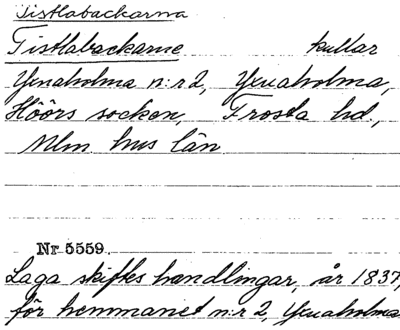 Tistlabackarna
Tistlabackarne kullar
Yxnaholma n:r 2, Yxnaholma,
Höörs socken, Frosta hd.,
Mlm. hus län
Nr 5559.
Laga skiftes handlingar, år 1837,
för hemmanet n:r 2, Yxnaholma